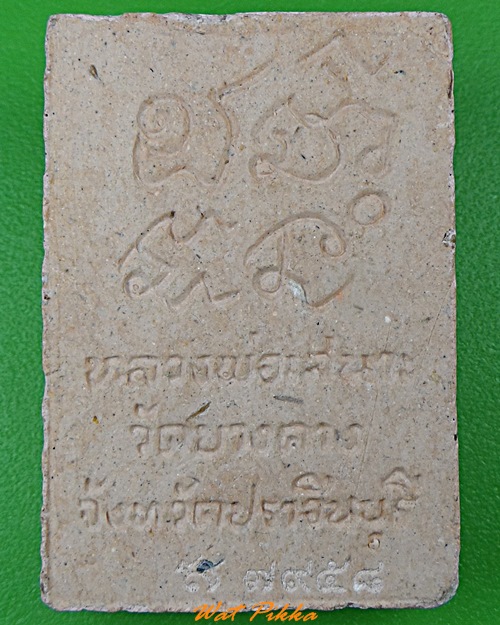 หลวงพ่อเสนาะ
วัดบางคาง
จังหวัดปราจีนบุรี
๗๙๕๘
Wat Pikka